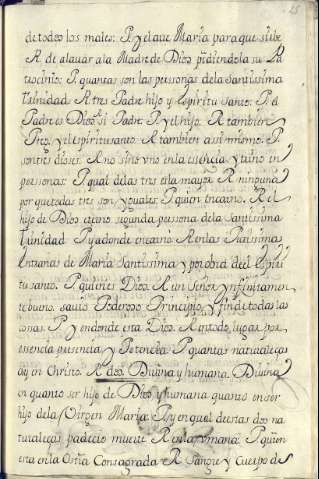 15
de todos los males: P. y el ave María para que sirbe
R. de alavar a la Madre de Dios pidiendola su Pa
trocinio: P. quantas son las personas de la Santissima
trinidad R. tres Padre hijo y espiritu santo: P. el
Padre es Dios R. si Padre P. y el hijo R. tambien
P. y el espiritu santo R. tambien asi mismo P.
son tres dioses R. no sino uno en la esencia y trino en
personas: P. qual de las tres es la mayor R. ninguna
por que todas tres son yguales P. quien encarno R. el
hijo de Dios segunda persona de la Santissima
trinidad P. y adonde encarno R. en las Purissimas
entrañas de María Santissima y por obra del Espiri
tu santo. P. quien es Dios R. un Señor ynfinitamen
te bueno, savio Poderoso Principio y fin de todas las
cosas P. y endonde esta Dios R. en todo lugar por
essencia presencia y Potencia P. quantas naturalezas
ay en Christo R. dos Divina y humana. Divina
en quanto ser hijo de Dios y humana quanto en ser
hijo de la Virgen Maria: P. y en qual de estas dos na
turalezas padecio muerte R. en la umana: P. quien
esta en la Ostia Consagrada R. Sangre y Cuerpo de